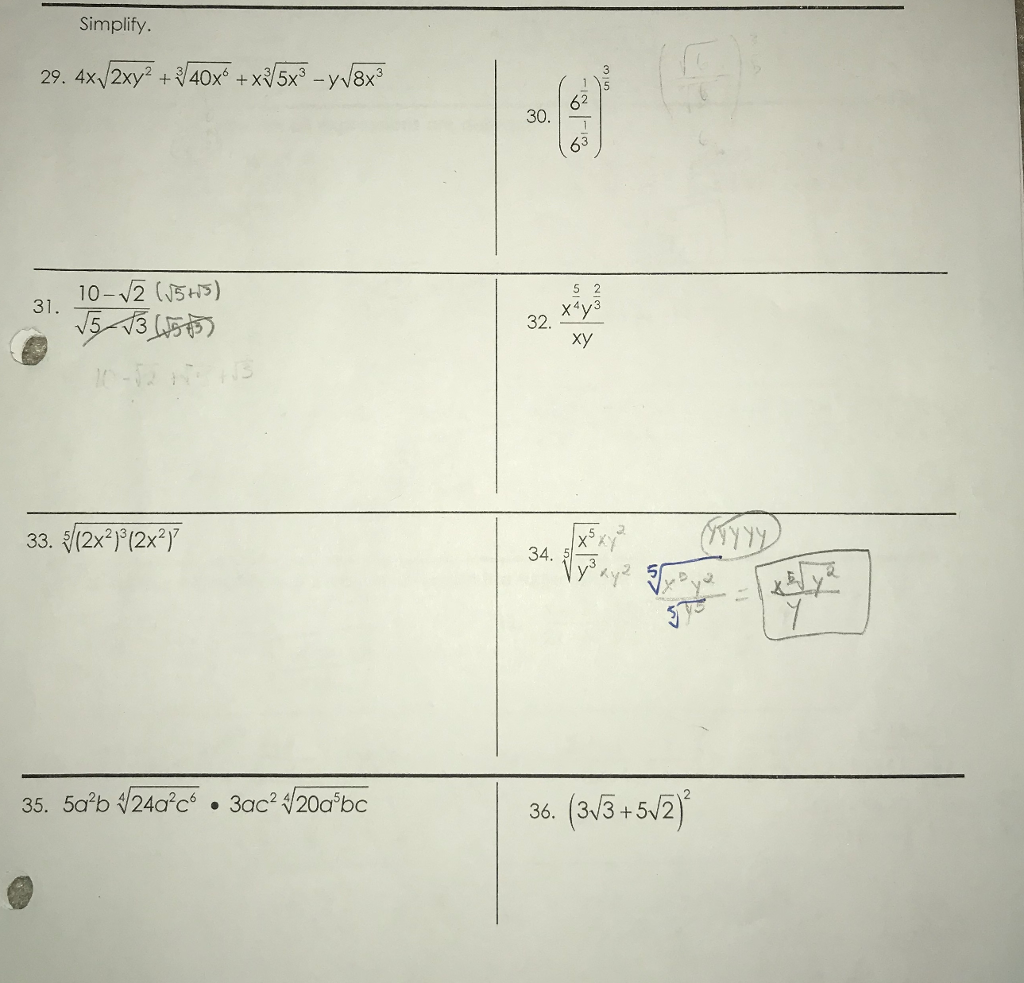 Simplify.
29. 4x√(2xy²) + ∛(40x⁶) + x∛(5x³) − y√(8x³)
30. (6^(1/2) / 6^(1/3))^(3/5)
31. (10 − √2 (√5+√3)) / (√5 − √3 (√5+√3))
32. x^(5/4) y^(2/3) / xy
33. ⁵√((2x²)³(2x²)⁷)
34. ⁵√(x⁵ xy² / y³ xy²)
yyyyy
⁵√(x⁵y²) / ⁵√(y⁵) = x ⁵√(y²) / y
35. 5a²b ⁴√(24a²c⁶) • 3ac² ⁴√(20a⁵bc)
36. (3√3 + 5√2)²